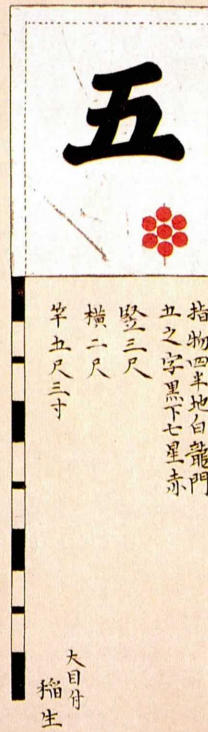 五
指物四半地白龍門
五之字黒下七星赤
竪三尺
横二尺
竿五尺三寸
大目付
稲生